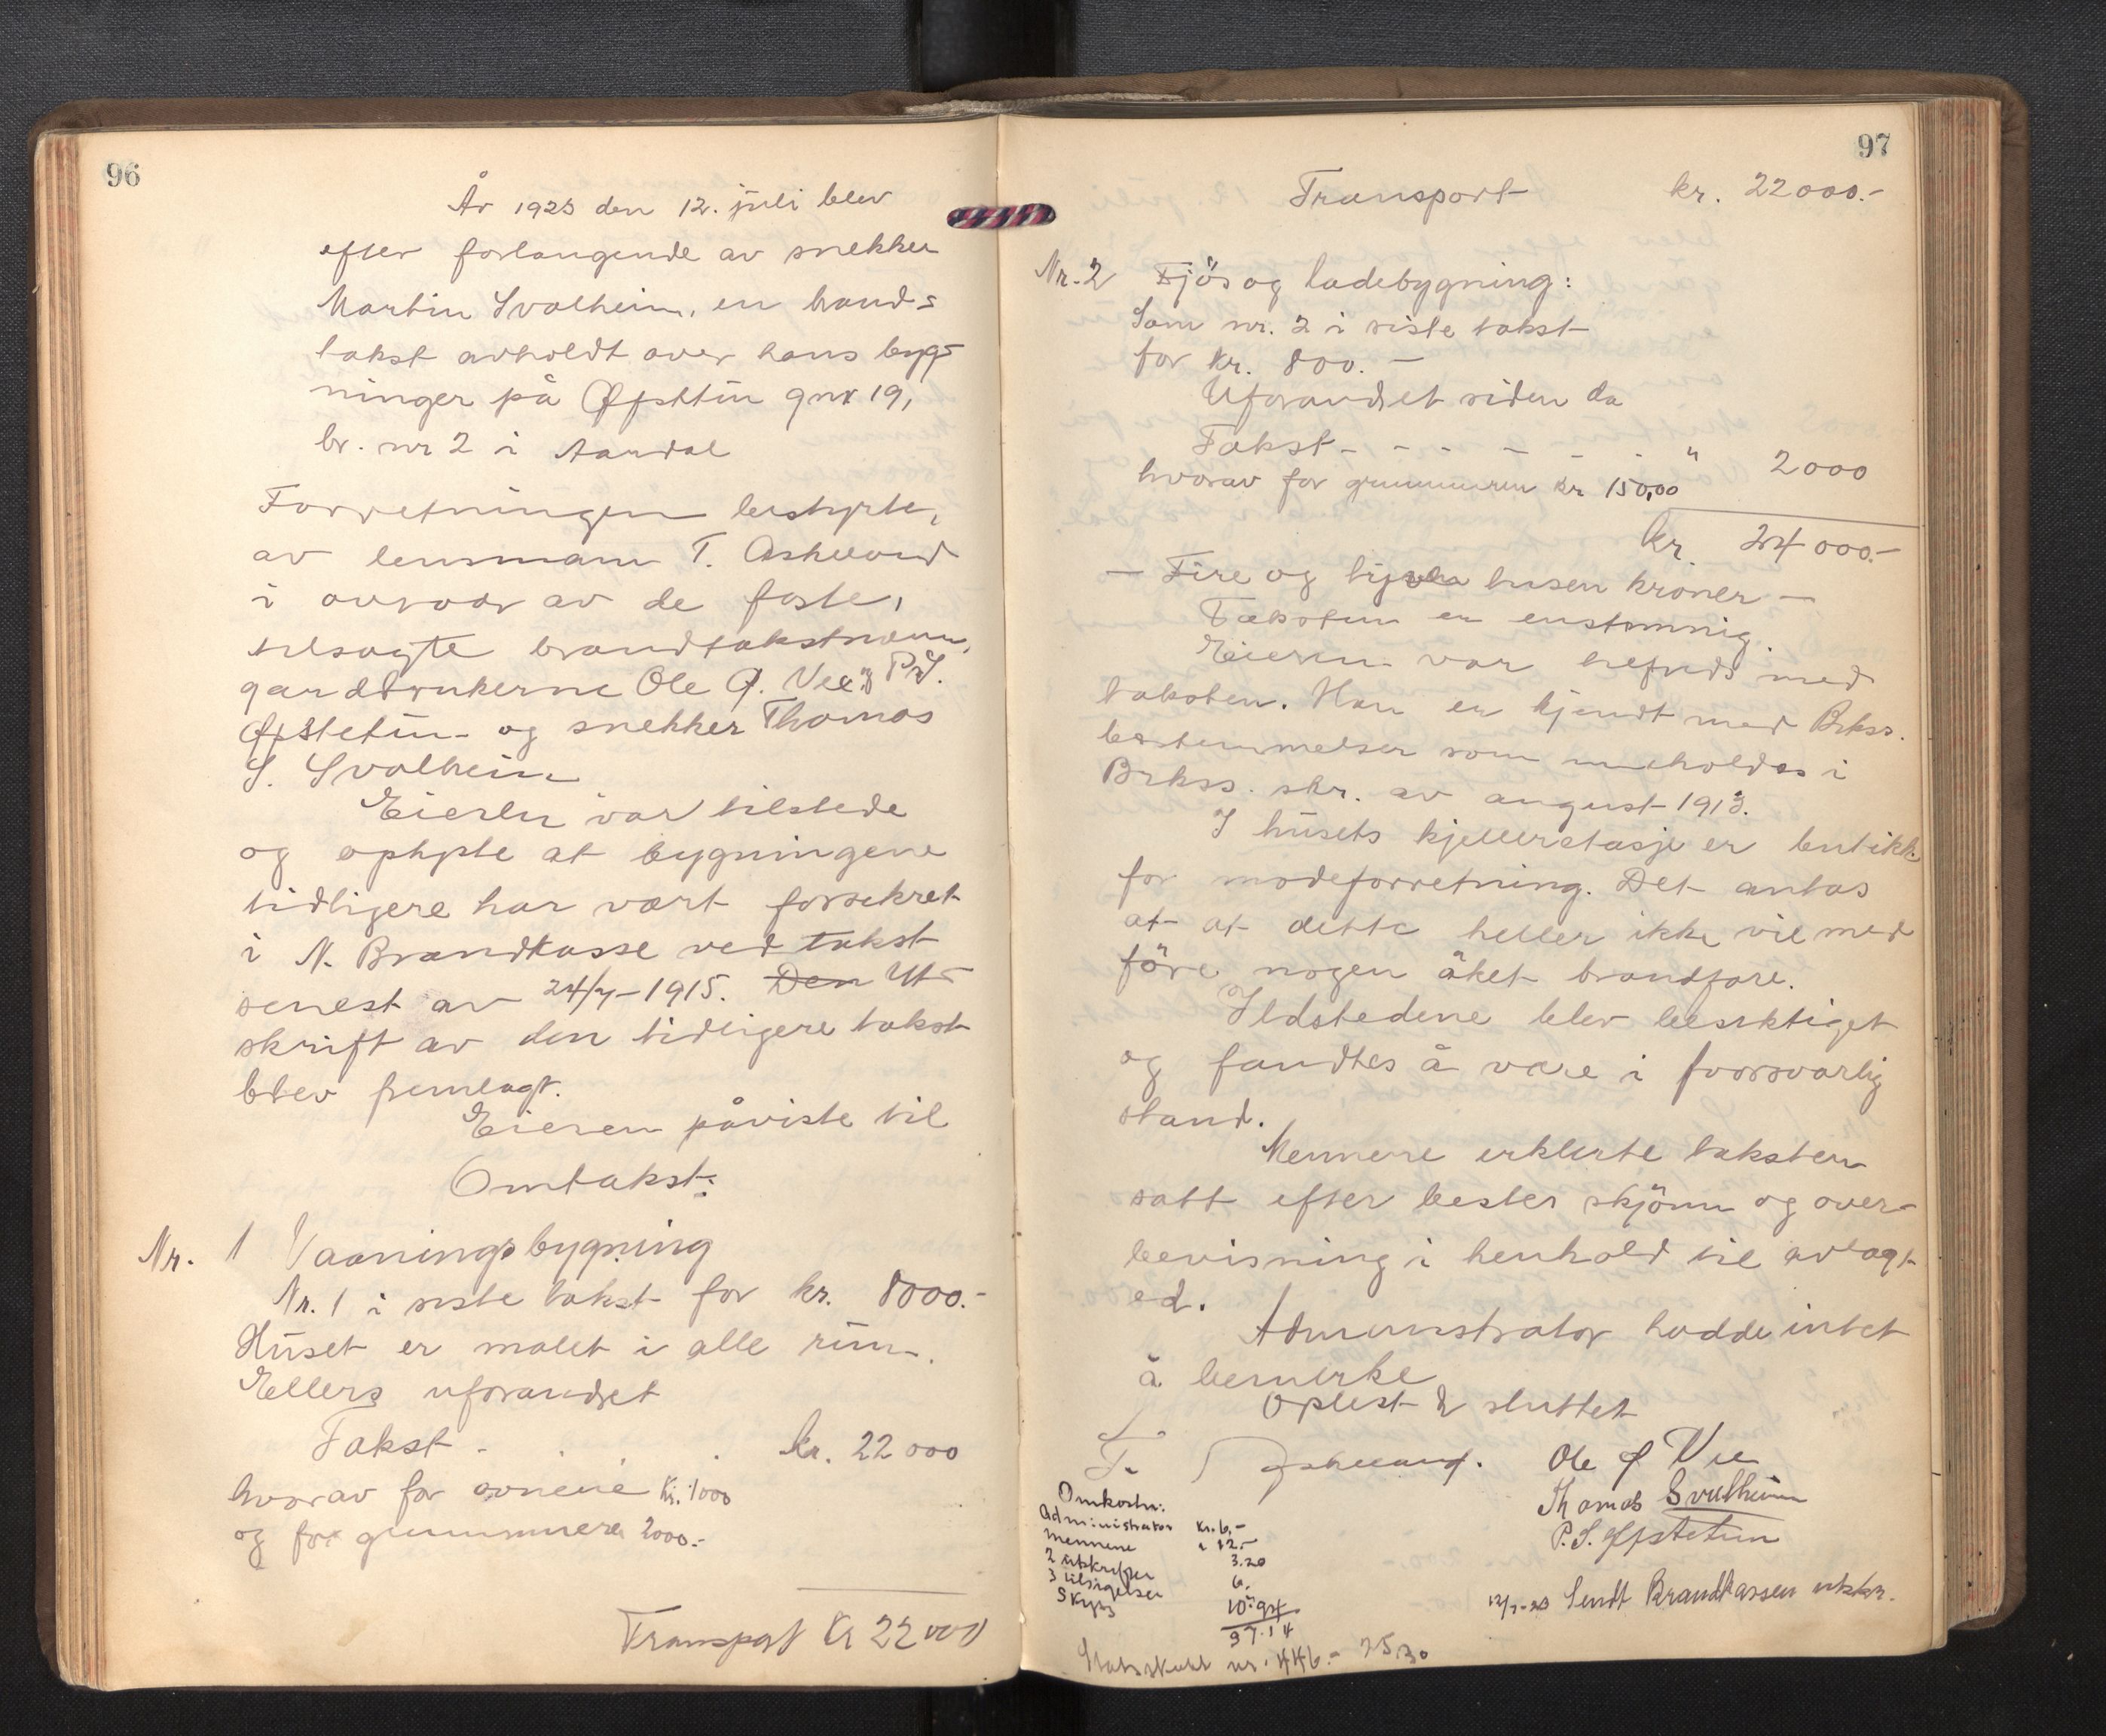 96
År 1923 den 12. juli blev
efter forlangende av snekker
Martin Svalheim, en brand-
takst avholdt over hans byg-
ninger på Øfstetun gnr 19,
br. nr 2 i Aardal
Forretningen bestyrte,
av lensmann T. Asheland
i overvær av de faste,
tilsagte brandtakstmenn,
gardbrukerne Ole Ø. Vee, P. S.
Øfstetun og snekker Thomas
S. Svalheim
Eieren var tilstede
og oplyste at bygningene
tidligere har vært forsekret
i N. Brandkasse ved takst
senest av 24/7-1915. Den Ut-
skrift av den tidligere takst
blev fremlagt.
Eieren påviste til
Omtakst:
Nr. 1 Vaaningsbygning
Nr. 1 i siste takst for kr. 8000.-
Huset er malet i alle rum.
Ellers uforandret
Takst - kr. 22 000
hvorav for ovnene Kr. 1000
og for grunmuren 2000.-
Transport Kr 22 000
97
Transport kr. 22 000.-
Nr. 2 Fjös og ladebygning:
Som nr. 2 i siste takst
for kr. 800.-
Uforandret siden da
Takst - - - - - - " 2000
hvorav for grunmuren kr 150,00
kr 24 000.-
- Fire og tyve tusen kroner -
Taksten er enstemmig.
Eieren var tilfreds med
taksten. Han er kjendt med Brkss.
bestemmelser som inneholdes i
Brkss. skr. av august 1913.
I husets kjelleretasje er butikk
for modeforretning. Det antas
at at dette heller ikke vil med
före nogen öket brandfare.
Ildstedene blev besiktiget
og fandtes å være i forsvarlig
stand.
Mennene erklærte taksten
satt efter beste skjönn og over-
bevisning i henhold til avlagt
ed.
Administrator hadde intet
å bemerke
Oplest & sluttet
T. Asheland. Ole Ø Vee
Thomas Svalheim
P. S. Øfstetun
Omkostn:
Administrator kr. 6,-
Mennene " 12.-
2 utskrifter 3.20
3 tilsigelser 6.
Skyss 10.94
37.14
12/7-23 Sendt Brandkassen utskr.
nr. 446.- 25.30